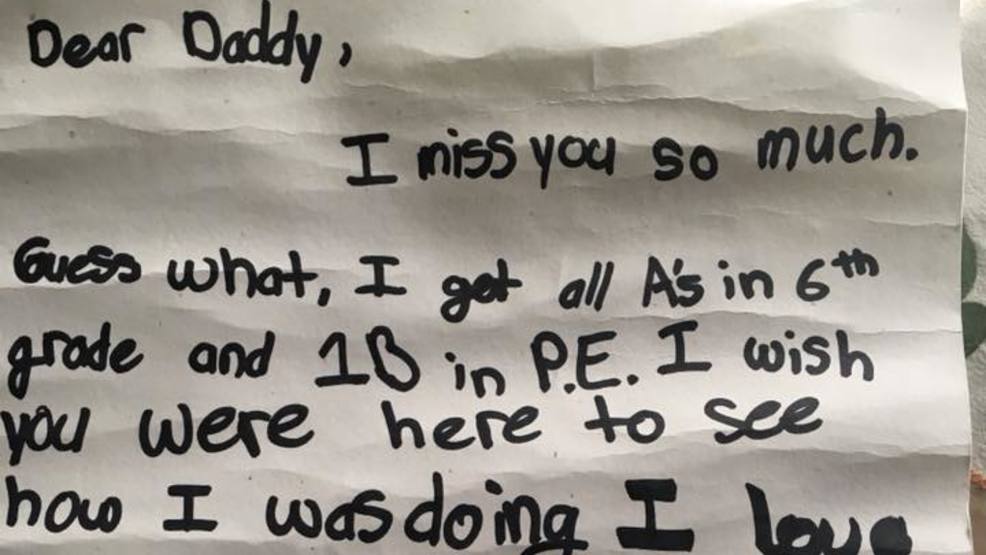 Dear Daddy,
I miss you so much.
Guess what, I get all A's in 6th
grade and 1B in P.E. I wish
you were here to see
how I was doing I love